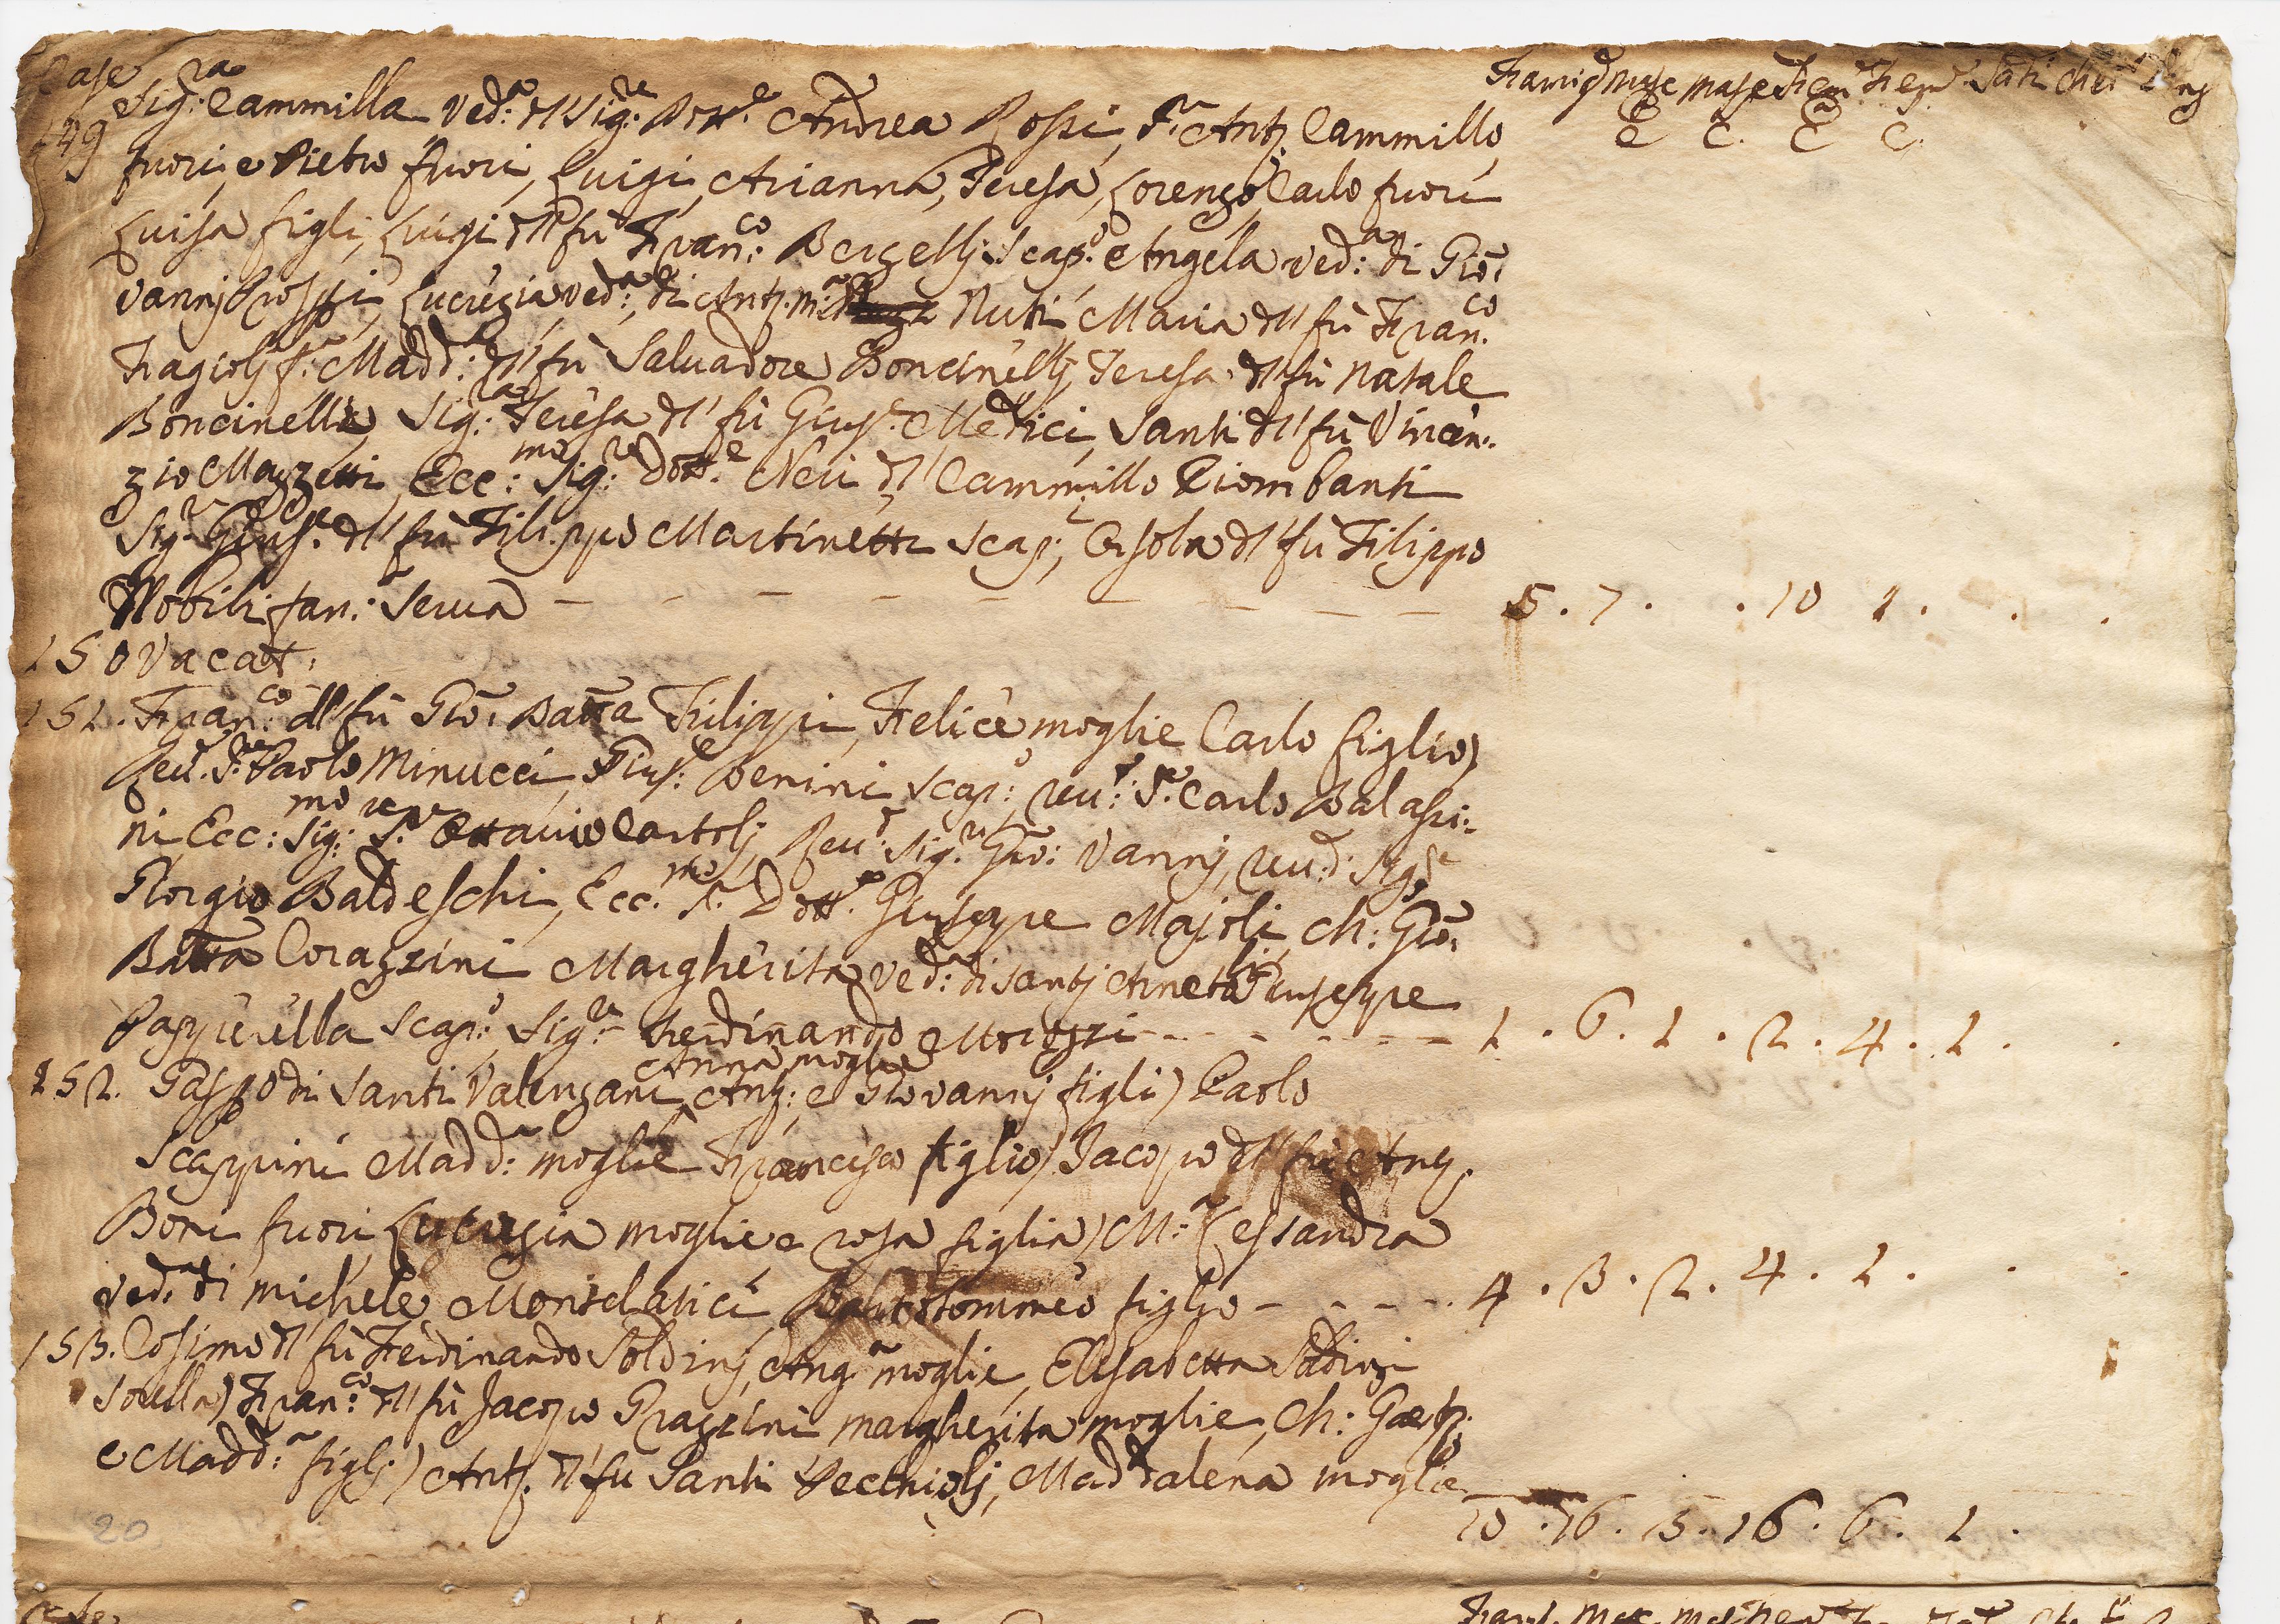 Case Famig. Masc Masc Fem. Fem. Sati Cher
149 Sig:ra Cammilla Ved:a dl Sig:re Dott.e Andrea Rossi, Ant. Cammillo C C. C C.
fuori, e Pietro fuori, Luigi, Arianna, Teresa, Lorenzo, Carlo fuori
Luisa figli, Luigi dl fù Fran:co Bergellj Scap:o Angela ved:a di Gio:
vannj Rossi, Lucrezia ved:a di Ant. Nuti Maria dl fù Fran:co
Fagiolj Madd:a dl fù Salvadore Boncinellj, Teresa dl fù Natale
Boncinelli, Sig:ra Teresa dl fù Gius.e Medici, Santi dl fù Vincen:
zio Mazzetti, Ecc:mo Sig:re Dott.e Neri dl Cammillo Piombanti
Sig.r Gius.e dl fù Filippo Martinetti Scap; Orsola dl fù Filippo
Nobili fan: Serva - - - - - - - - - 5 . 7 . . 10 1 . . .
150 Vacat.
151. Fran:co dl fù Gio: Batta Filippi, Felice moglie Carlo figlio)
Reu. P.re Paolo Minucci, Gius:e Benini scap:o, reu: Carlo Balassi:
ni, Ecc:mo Sig:re Ottavio Cartolj, Reu: Sig.re Gio: Vannj, reu:d Sig.re
Giorgio Baldeschi, Ecc.mo S. Dott.e Giuseppe Majoli, Ch: Gio:
Batta Corazzini Margherita ved:a di Santj Giuseppe
Pappierella scap:o Sig.re Ferdinando Morozzi - - - - - - - 1 . 6 . 1 . 2 . 4 . 1 . .
152. Gasp.o di Santi Valenzani Anna moglie Ang: e Giovannj figli) Paolo
Scappini Madd:a moglie Francesco figlio) Jacopo dl fù Ang.
Boni fuori, Lucrezia moglie e rosa figlia) M:a Lessandra
ved.a di Michele Monsclatici Bartolommeo figlio - - - - 4 . 3 . 2 . 4 . 1 . . .
153. Cosimo dl fù Ferdinando Soldinj, Ang.a moglie, Elisabetta Soldini
sorella) Fran:co dl fù Jacopo Grazzini margherita moglie, Ch: Gasp:o
e Madd:a figlj) Ant. dl fù Santi Pecchiolj, Maddalena moglie
20 10 . 16 . 5 . 18 . 6 . 1 .